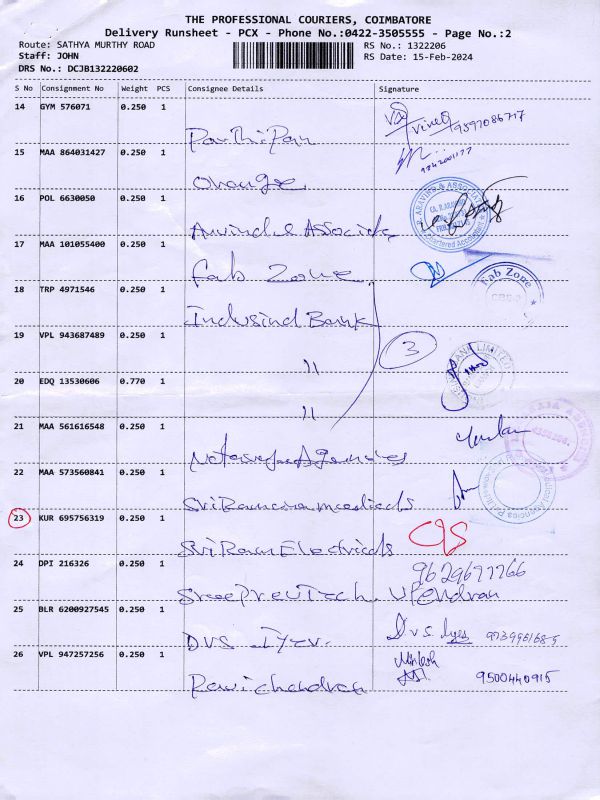 THE PROFESSIONAL COURIERS, COIMBATORE
Delivery Runsheet - PCX - Phone No.:0422-3505555 - Page No.:2
Route: SATHYA MURTHY ROAD
RS No.: 1322206
Staff: JOHN
RS Date: 15-Feb-2024
DRS No.: DCJB132220602
S No Consignment No Weight PCS Consignee Details Signature
14 GYM 576071 0.250 1 Parthipan
15 MAA 864031427 0.250 1 Orange
16 POL 6630050 0.250 1 Arvind & Associate
17 MAA 101055400 0.250 1 Fab Zone
Fab Zone
18 TRP 4971546 0.250 1 Indusind Bank
19 VPL 943687489 0.250 1 "
3
20 EDQ 13530606 0.770 1 "
21 MAA 561616548 0.250 1 Agencies
22 MAA 573560841 0.250 1
23 KUR 695756319 0.250 1 Sri Ram Electricals
24 DPI 216326 0.250 1
25 BLR 6200927545 0.250 1 DVS
26 VPL 947257256 0.250 1 Ravichandran 9500440915